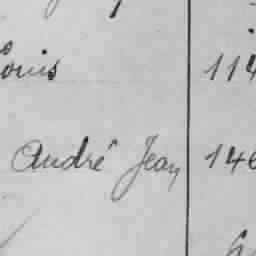 Louis 114
André Jean 146